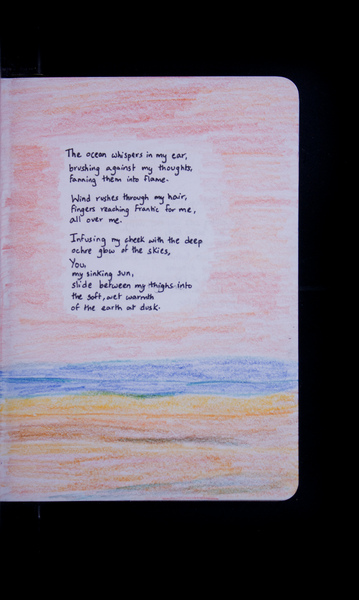 The ocean whispers in my ear,
brushing against my thoughts,
fanning them into flame.
Wind rushes through my hair,
fingers reaching frantic for me,
all over me.
Infusing my cheek with the deep
ochre glow of the skies,
You,
my sinking sun,
slide between my thighs into
the soft, wet warmth
of the earth at dusk.